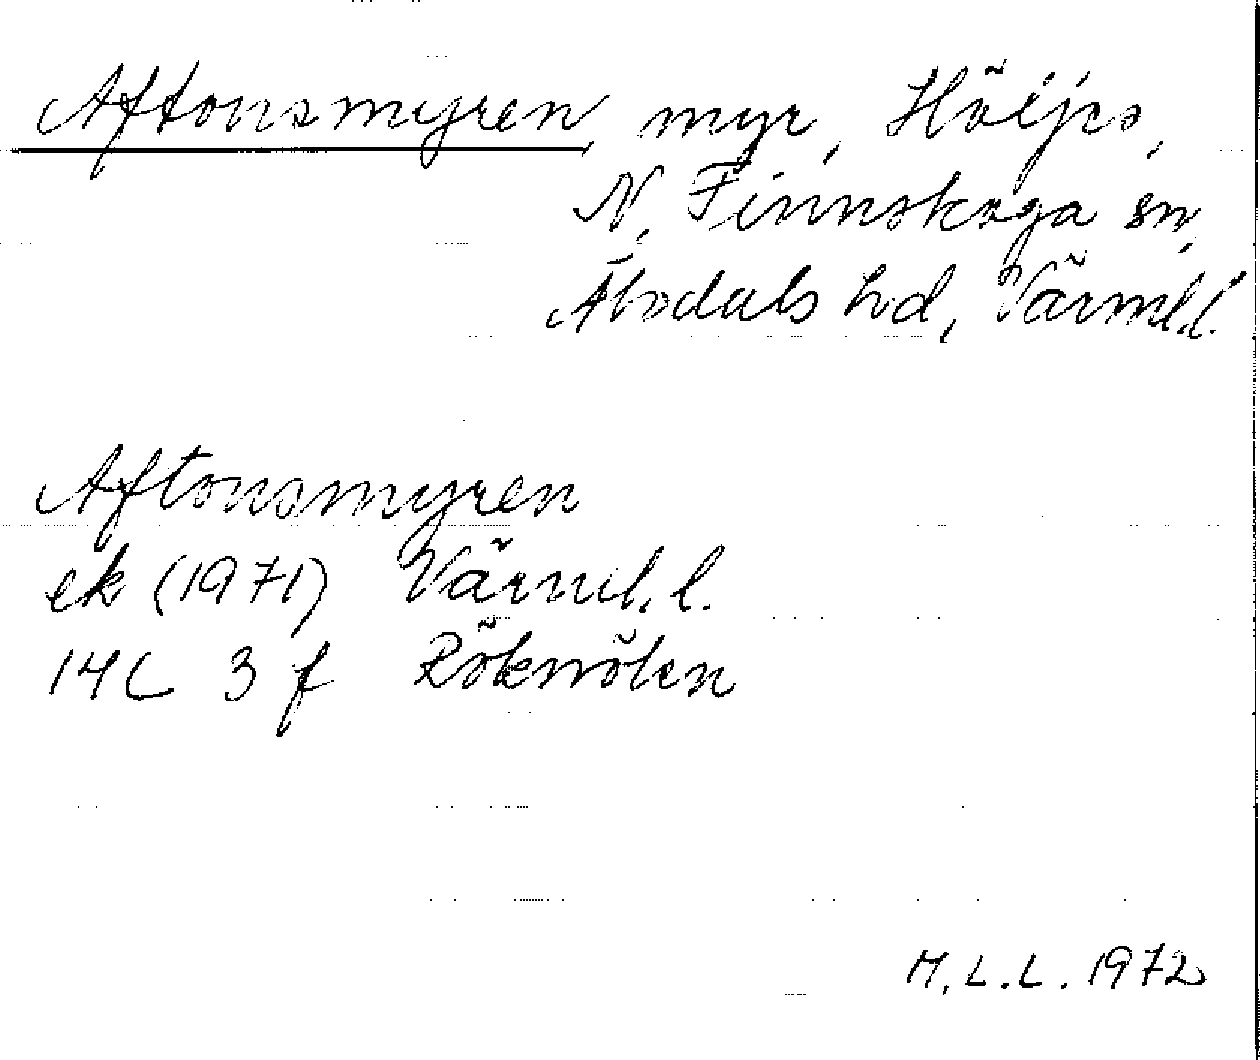 Aftonsmyren, myr, Höljes,
N. Finnskoga sn,
Älvdals hd, Värml.l.
Aftonsmyren
ek (1971) Värml. l.
14C 3 f Röknölen
M.L.L. 1972